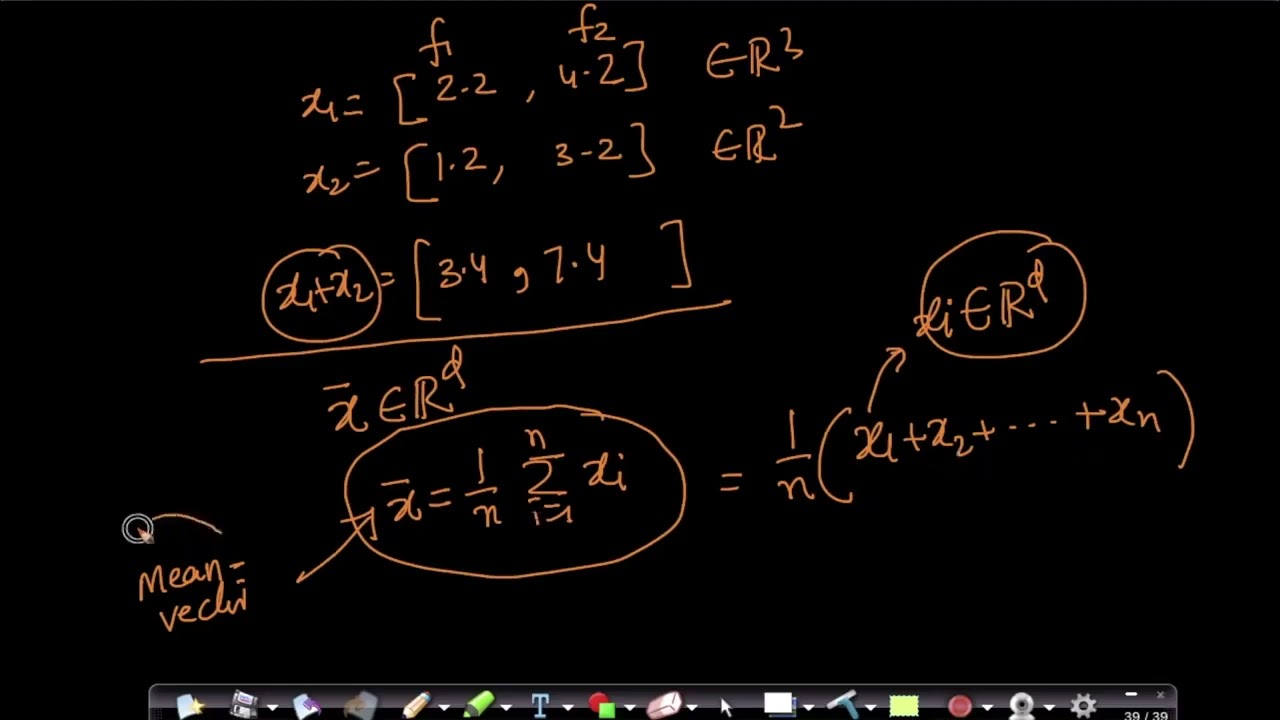 f₁ f₂
x₁ = [2.2, 4.2] ∈ ℝ³
x₂ = [1.2, 3.2] ∈ ℝ²
x₁+x₂ = [3.4, 7.4]
xᵢ ∈ ℝᵈ
x̄ ∈ ℝᵈ
x̄ = 1/n Σⁿᵢ₌₁ xᵢ = 1/n (x₁+x₂+....+xₙ)
Mean-
vector
T
39 / 39